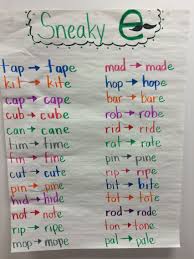 Sneaky e
tap → tape
kit → kite
cap → cape
cub → cube
can → cane
Tim → time
fin → fine
cut → cute
pin → pine
hid → hide
not → note
rip → ripe
mop → mope
mad → made
hop → hope
bar → bare
rob → robe
rid → ride
rat → rate
pin → pine
rip → ripe
bit → bite
tot → tote
ton → tone
pal → pale